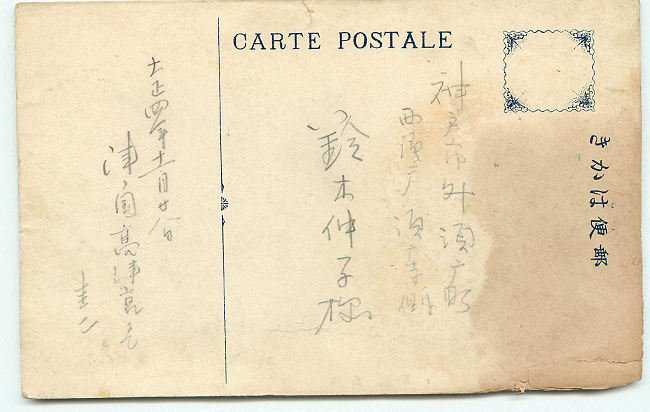 CARTE POSTALE
きかは便郵
神戸市外須磨町
西須磨 須磨寺側
鈴木仲子様
大正四年十一月廿八日
津国高津宮